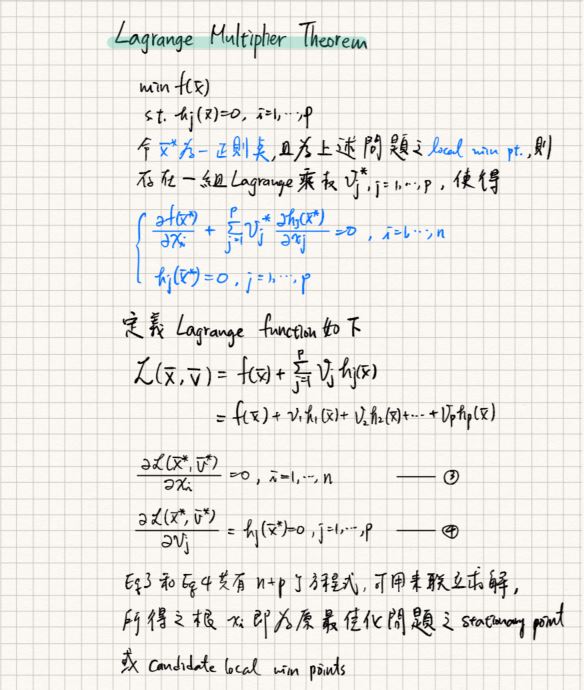 Lagrange Multiplier Theorem
min f(x̄)
s.t. hj(x̄)=0, i=1,…,p
令 x̄* 為一正則點,且為上述問題之local min pt.,則
存在一組Lagrange乘數 vj*, j=1,…,p, 使得
∂f(x̄*)/∂xi + Σ_{j=1}^{p} vj* ∂hj(x̄*)/∂xj =0 , i=1,…,n
hj(x̄*)=0, j=1,…,p
定義 Lagrange function如下
L(x̄,v̄) = f(x̄) + Σ_{j=1}^{p} vj hj(x̄)
= f(x̄) + v1h1(x̄) + v2h2(x̄)+…+ vphp(x̄)
∂L(x̄*,v̄*)/∂xi =0 , i=1,…,n —— ③
∂L(x̄*,v̄*)/∂vj = hj(x̄*)=0, j=1,…,p —— ④
Eq3 和 Eq4 共有 n+p 個方程式, 可用來联立求解,
所得之根 xi 即為原最佳化問題之 stationary point
或 candidate local min points